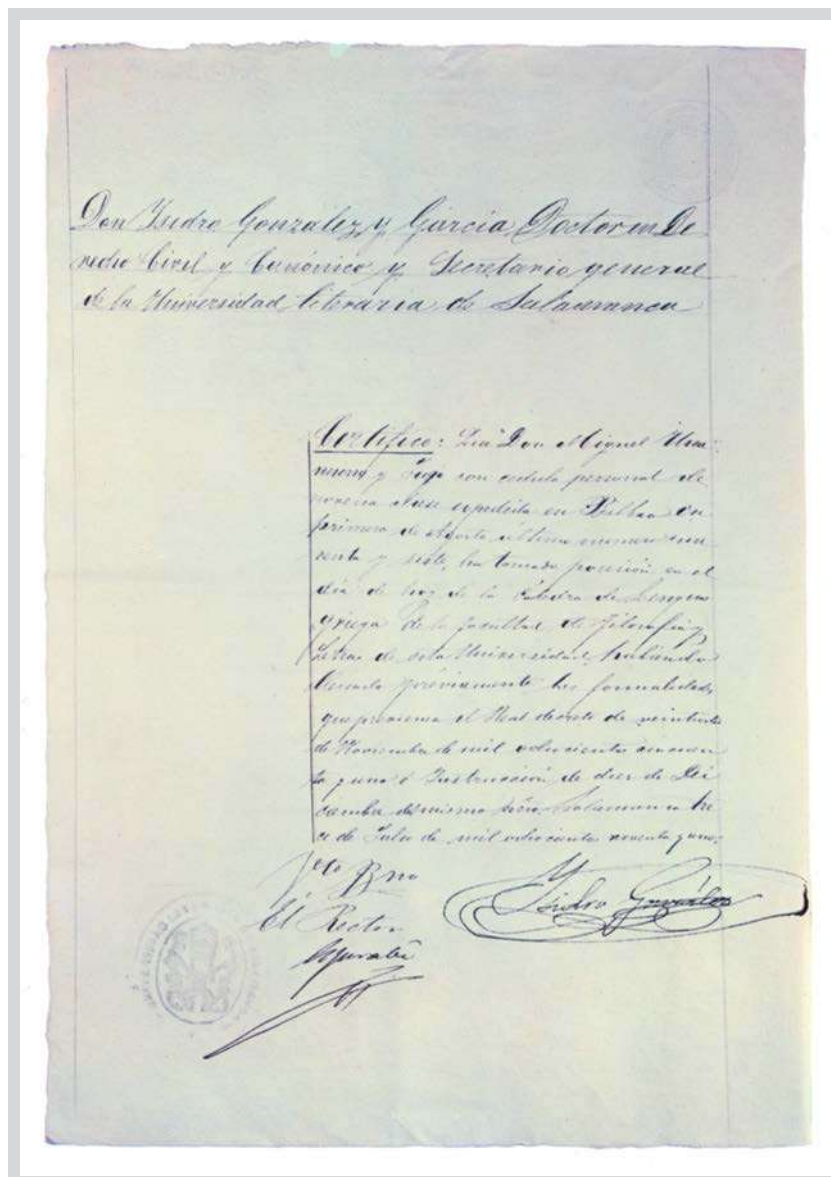 Don Isidro González y García Doctor en De
recho Civil y Canónico y Secretario general
de la Universidad literaria de Salamanca
Certifico: Que Don Miguel Una-
muno y Jugo con cedula personal de
novena clase expedida en Bilbao en
primero de Agosto último numero
y siete, ha tomado posesión en el
dia de hoy de la Cátedra de Lengua
griega de la facultad de Filosofia y
Letras de esta Universidad, habiendo
llenado préviamente las formalidades
que previene el Real decreto de veintiocho
de Noviembre de mil ochocientos cincuen
ta y uno é Instrucción de diez de Di
ciembre del mismo año. Salamanca tre
ce de Julio de mil ochocientos noventa y uno.
Vto Bno
El Rector
Isidro González